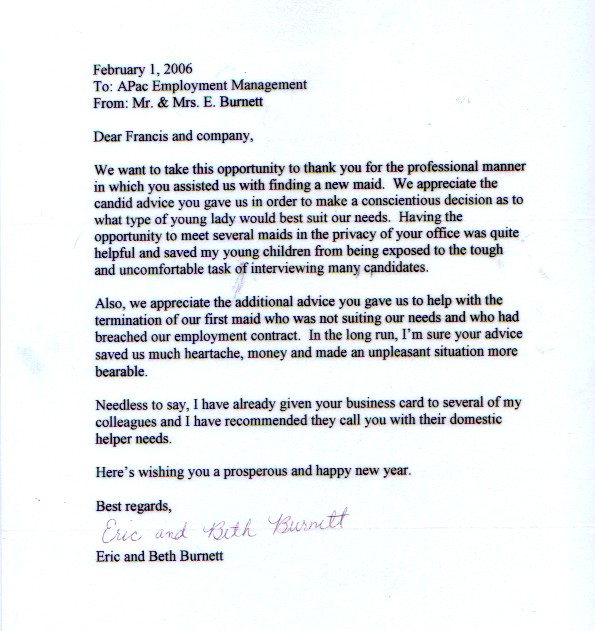 February 1, 2006
To: APac Employment Management
From: Mr. & Mrs. E. Burnett
Dear Francis and company,
We want to take this opportunity to thank you for the professional manner
in which you assisted us with finding a new maid. We appreciate the
candid advice you gave us in order to make a conscientious decision as to
what type of young lady would best suit our needs. Having the
opportunity to meet several maids in the privacy of your office was quite
helpful and saved my young children from being exposed to the tough
and uncomfortable task of interviewing many candidates.
Also, we appreciate the additional advice you gave us to help with the
termination of our first maid who was not suiting our needs and who had
breached our employment contract. In the long run, I'm sure your advice
saved us much heartache, money and made an unpleasant situation more
bearable.
Needless to say, I have already given your business card to several of my
colleagues and I have recommended they call you with their domestic
helper needs.
Here's wishing you a prosperous and happy new year.
Best regards,
Eric and Beth Burnett
Eric and Beth Burnett